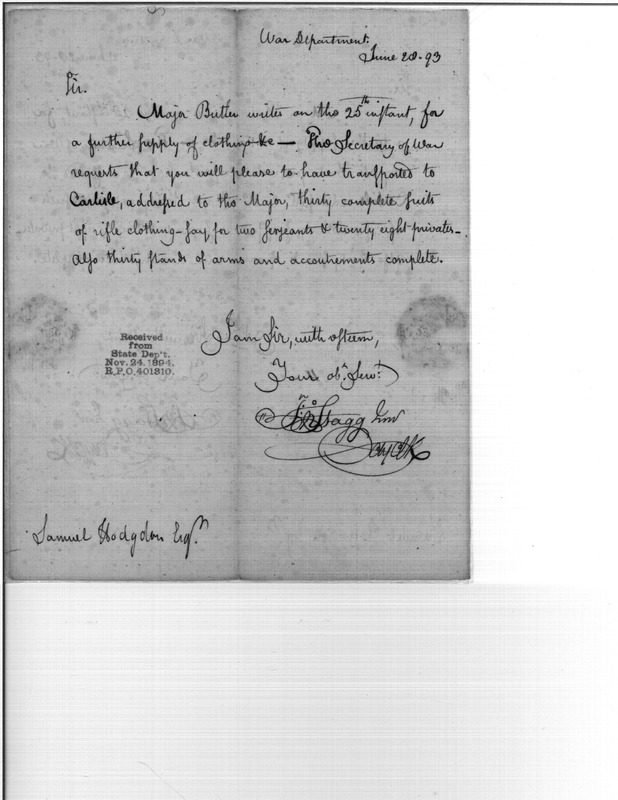 War Department.
June 28. 93
Sir.
Major Butler writes on the 25th instant, for
a further supply of clothing &c — The Secretary of War
requests that you will please to have transported to
Carlisle, addressed to the Major, thirty complete suits
of rifle clothing - say, for two serjeants & twenty eight privates -
also thirty stands of arms and accoutrements complete.
I am Sir, with esteem,
Your obt Servt
Jno Stagg Junr
Chf Clk
Received
from
State Dep't.
Nov. 24. 1894.
R.P.O. 401310.
Samuel Hodgdon Esqr